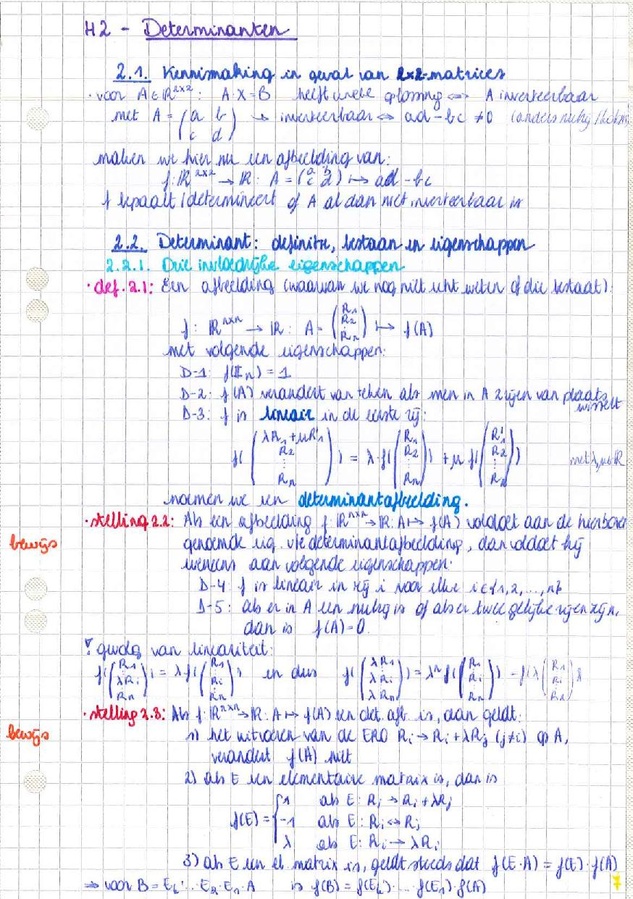 H2 - Determinanten
2.1. Kennismaking in geval van 2x2-matrices
• voor A ∈ ℝ²ˣ²: A·X = B heeft unieke oplossing ⟺ A inverteerbaar
met A = (a b; c d) → inverteerbaar ⟺ ad - bc ≠ 0 (anders nulrij
maken we hier nu een afbeelding van:
f: ℝ²ˣ² → ℝ: A = (a b; c d) ↦ ad - bc
f bepaalt / determineert of A al dan niet inverteerbaar is
2.2. Determinant: definitie, bestaan en eigenschappen
2.2.1. Drie invloedrijke eigenschappen
• def. 2.1: Een afbeelding (waarvan we nog niet echt weten of die bestaat):
f: ℝⁿˣⁿ → ℝ: A = (R₁; R₂; ⋮; Rₙ) ↦ f(A)
met volgende eigenschappen:
D-1: f(𝕀ₙ) = 1
D-2: f(A) verandert van teken als men in A rijen van plaats wisselt
D-3: f is lineair in de eerste rij:
f((λR₁ + μR'₁; R₂; ⋮; Rₙ)) = λ·f((R₁; R₂; ⋮; Rₙ)) + μ f((R'₁; R₂; ⋮; Rₙ)) met λ,μ∈ℝ
noemen we een determinantafbeelding.
bewijs • stelling 2.2: Als een afbeelding f: ℝⁿˣⁿ → ℝ: A ↦ f(A) voldoet aan de hierboven
genoemde eig. v/e determinantafbeelding, dan voldoet hij
eveneens aan volgende eigenschappen:
D-4: f is lineair in rij i voor elke i ∈ {1, 2, ..., n}
D-5: als er in A een nulrij is of als er twee gelijke rijen zijn,
dan is f(A) = 0.
gevolg van lineariteit:
f((R₁; λRᵢ; Rₙ)) = λ f((R₁; Rᵢ; Rₙ)) en dus f((λR₁; λRᵢ; λRₙ)) = λⁿ f((R₁; Rᵢ; Rₙ)) = f(λ(R₁; Rᵢ; Rₙ))
bewijs • stelling 2.3: Als f: ℝⁿˣⁿ → ℝ: A ↦ f(A) een det. afb. is, dan geldt:
1) het uitvoeren van de ERO Rᵢ → Rᵢ + λRⱼ (j≠i) op A,
verandert f(A) niet
2) als E een elementaire matrix is, dan is
f(E) = { 1 als E: Rᵢ → Rᵢ + λRⱼ
-1 als E: Rᵢ ↔ Rⱼ
λ als E: Rᵢ → λRᵢ
3) als E een el. matrix is, geldt steeds dat f(E·A) = f(E)·f(A)
⇒ voor B = Eₖ ... E₂·E₁·A is f(B) = f(Eₖ) ... f(E₁)·f(A)
7